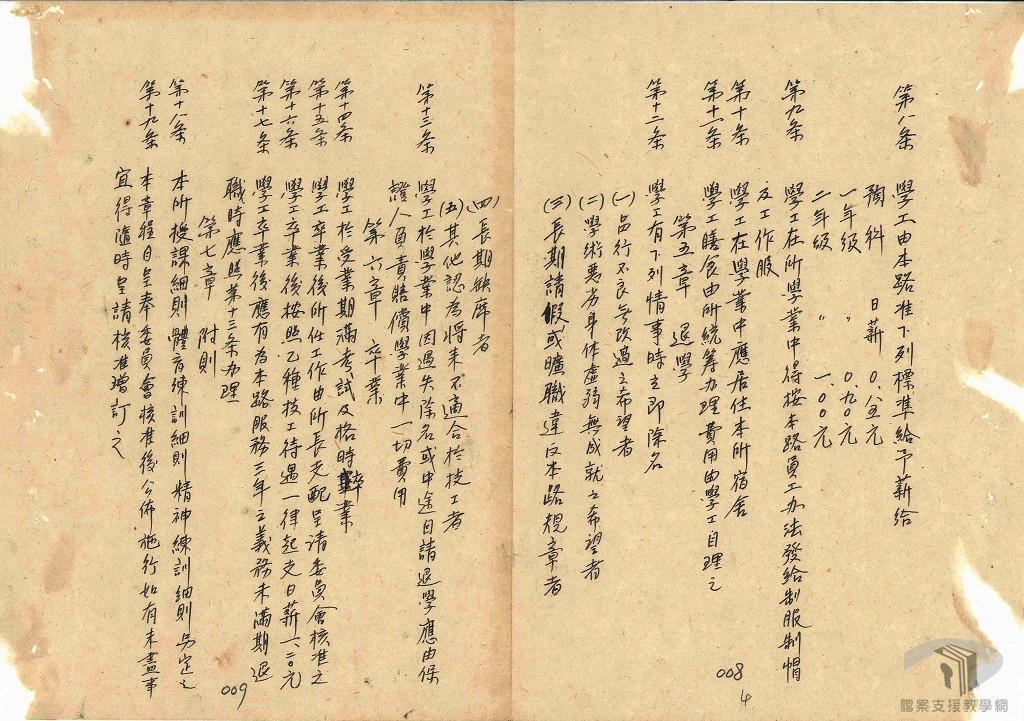 第八条 學工由本路准下列標準給予薪給
預科 日薪 0.八五元
一年級 〃 0.九0元
二年級 〃 一.00元
第九条 學工在所學業中得按本路員工办法發給制服制帽
及工作服
第十条 學工在學業中應居住本所宿舍
第十一条 學工膳食由所統筹办理費用由學工自理之
第五章 退學
第十二条 學工有下列情事時立即除名
(一)品行不良無改過之希望者
(二)學術惡劣身体虛弱無成就之希望者
(三)長期請假或曠職違反本路規章者
008
4
(四)長期缺席者
(五)其他認為將来不適合於技工者
第十三条 學工於學業中因過失除名或中途自請退學應由保
證人負責賠償學業中一切費用
第六章 卒業
第十四条 學工於受業期滿考試及格時卒業
第十五条 學工卒業後所任工作由所長支配呈請委員會核准之
第十六条 學工卒業後按照乙種技工待遇一律起支日薪一.二0元
第十七条 學工卒業後應有為本路服務三年之義務未滿期退
職時應照第十三条办理
第七章 附則
第十八条 本所授課細則體育練訓細則精神練訓細則另定之
第十九条 本章程自呈奉委員會核准後公佈施行如有未盡事
宜得隨時呈請核准增訂之
009
檔案支援教學網